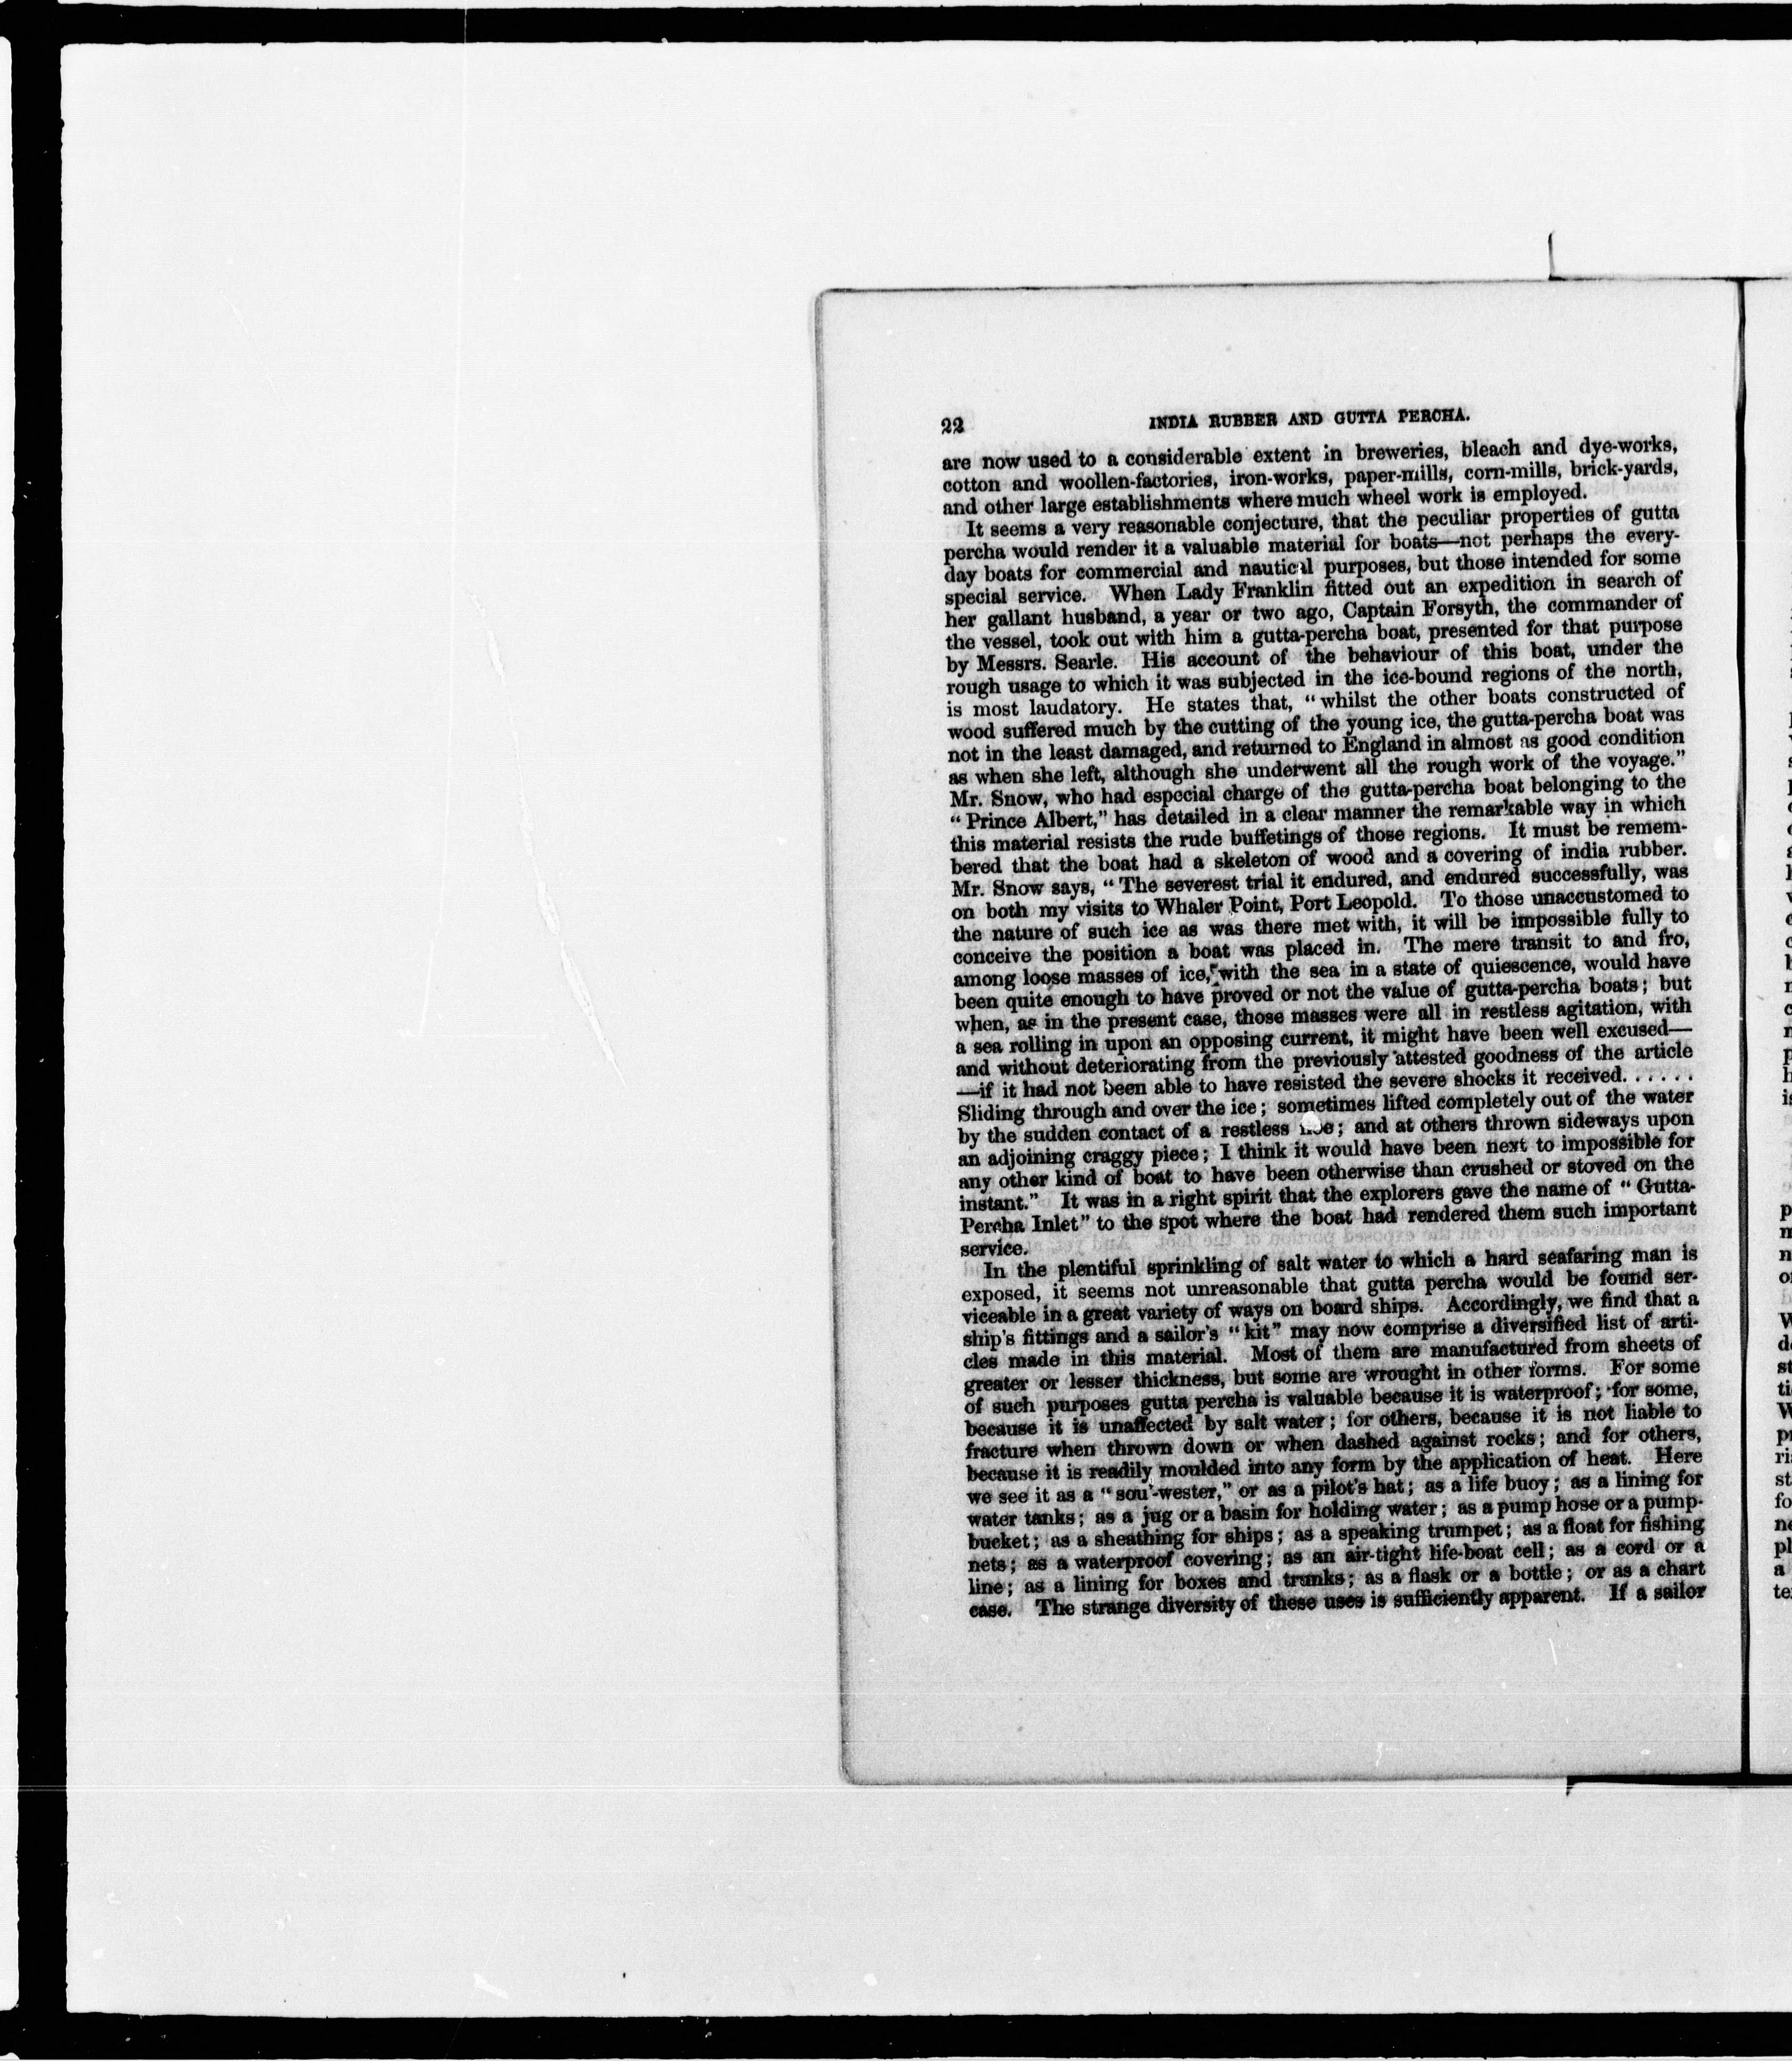 22 INDIA RUBBER AND GUTTA PERCHA.
are now used to a considerable extent in breweries, bleach and dye-works,
cotton and woollen-factories, iron-works, paper-mills, corn-mills, brick-yards,
and other large establishments where much wheel work is employed.
It seems a very reasonable conjecture, that the peculiar properties of gutta
percha would render it a valuable material for boats—not perhaps the every-
day boats for commercial and nautical purposes, but those intended for some
special service. When Lady Franklin fitted out an expedition in search of
her gallant husband, a year or two ago, Captain Forsyth, the commander of
the vessel, took out with him a gutta-percha boat, presented for that purpose
by Messrs. Searle. His account of the behaviour of this boat, under the
rough usage to which it was subjected in the ice-bound regions of the north,
is most laudatory. He states that, “whilst the other boats constructed of
wood suffered much by the cutting of the young ice, the gutta-percha boat was
not in the least damaged, and returned to England in almost as good condition
as when she left, although she underwent all the rough work of the voyage.”
Mr. Snow, who had especial charge of the gutta-percha boat belonging to the
“Prince Albert,” has detailed in a clear manner the remarkable way in which
this material resists the rude buffetings of those regions. It must be remem-
bered that the boat had a skeleton of wood and a covering of india rubber.
Mr. Snow says, “The severest trial it endured, and endured successfully, was
on both my visits to Whaler Point, Port Leopold. To those unaccustomed to
the nature of such ice as was there met with, it will be impossible fully to
conceive the position a boat was placed in. The mere transit to and fro,
among loose masses of ice, with the sea in a state of quiescence, would have
been quite enough to have proved or not the value of gutta-percha boats; but
when, as in the present case, those masses were all in restless agitation, with
a sea rolling in upon an opposing current, it might have been well excused—
and without deteriorating from the previously attested goodness of the article
—if it had not been able to have resisted the severe shocks it received. . . . . .
Sliding through and over the ice; sometimes lifted completely out of the water
by the sudden contact of a restless ; and at others thrown sideways upon
an adjoining craggy piece; I think it would have been next to impossible for
any other kind of boat to have been otherwise than crushed or stoved on the
instant.” It was in a right spirit that the explorers gave the name of “Gutta-
Percha Inlet” to the spot where the boat had rendered them such important
service.
In the plentiful sprinkling of salt water to which a hard seafaring man is
exposed, it seems not unreasonable that gutta percha would be found ser-
viceable in a great variety of ways on board ships. Accordingly, we find that a
ship's fittings and a sailor's “kit” may now comprise a diversified list of arti-
cles made in this material. Most of them are manufactured from sheets of
greater or lesser thickness, but some are wrought in other forms. For some
of such purposes gutta percha is valuable because it is waterproof; for some,
because it is unaffected by salt water; for others, because it is not liable to
fracture when thrown down or when dashed against rocks; and for others,
because it is readily moulded into any form by the application of heat. Here
we see it as a “sou'-wester,” or as a pilot's hat; as a life buoy; as a lining for
water tanks; as a jug or a basin for holding water; as a pump hose or a pump-
bucket; as a sheathing for ships; as a speaking trumpet; as a float for fishing
nets; as a waterproof covering; as an air-tight life-boat cell; as a cord or a
line; as a lining for boxes and trunks; as a flask or a bottle; or as a chart
case. The strange diversity of these uses is sufficiently apparent. If a sailor